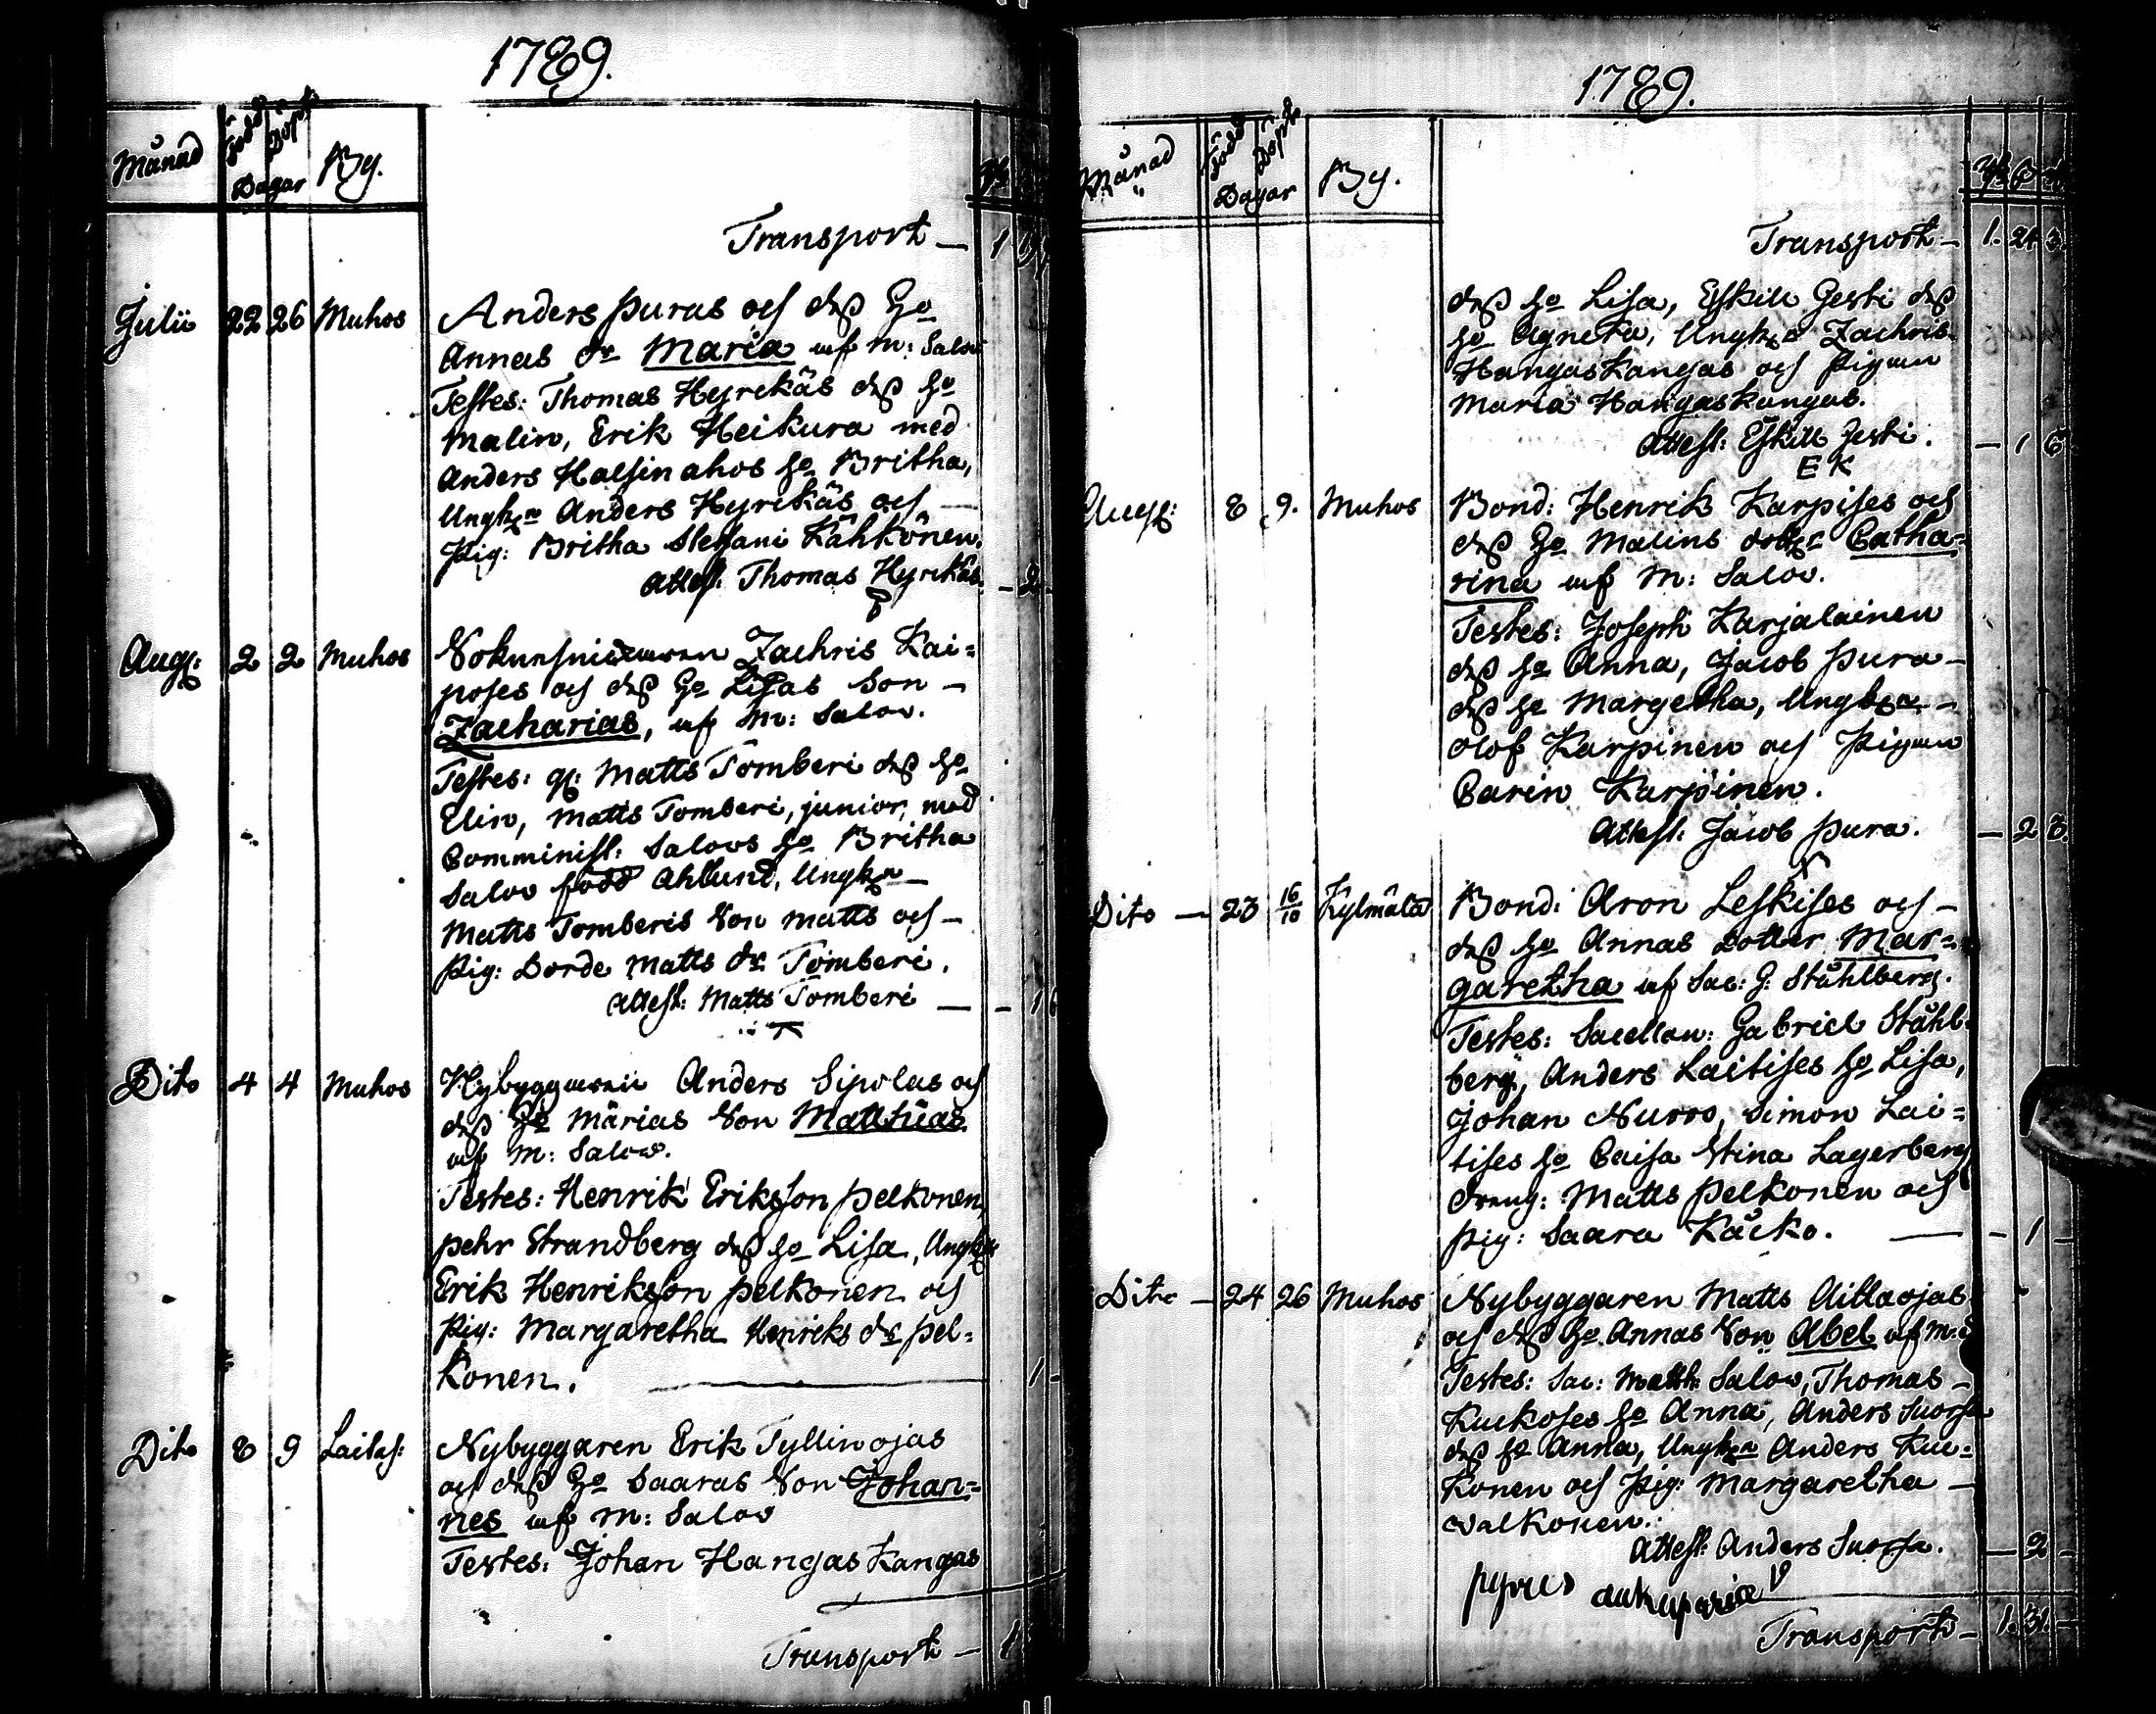 1789.
Månad Född Döpt Dagar By.
Transport — 1
Julii 22 26 Muhos Anders Puras och dess Ho
Annas dr Maria af M: Salov
Testes: Thomas Hyrckäs dess ho
Malin, Erik Heikura med
Anders Halsinahos ho Britha,
Ungkn Anders Hyrckäs och —
Pig: Britha Stephani Kähkönen.
Attest: Thomas Hyrckäs. - 2
Aug: 2 2 Muhos Zachris Kai=
poses och dess Ho Lisas Son —
Zacharias, af M: Salov.
Testes: gl: Matts Tomberi dess ho
Elin, Matts Tomberi, junior, med
Comminist: Salovs ho Britha
Salov född Ahlund, Ungkn —
Matts Tomberis Son Matts och —
Pig: Dorde Matts dr Tomberi.
Attest: Matts Tomberi — - 1
Dito 4 4 Muhos Nybyggaren Anders Sipolas och
dess Ho Marias Son Matthias
af M: Salov.
Testes: Henrik Eriksson Pelkonen,
Pehr Strandberg dess ho Lisa, Ungkn
Erik Henriksson Pelkonen och
Pig: Margaretha Henriks dr Pel=
konen. — 1 -
Dito 8 9 Laitas: Nybyggaren Erik Tyllinojas
och dess Ho Saaras Son Johan=
nes af M: Salov
Testes: Johan Hangaskangas
Transport — 1
1789.
Månad Född Döpt Dagar By.
Transport — 1. 24 3.
dess ho Lisa, Eskill Jesti dess
ho Agneta, Ungkn Zachris
Hangaskangas och Pigan
Maria Hangaskangas.
Attest: Eskill Jesti. — 1 6
E K
Aug: 8 9. Muhos Bond: Henrik Karpises och
dess Ho Malins dottr Catha=
rina af M: Salov.
Testes: Joseph Karjalainen
dess ho Anna, Jacob Pura —
dess ho Margetha, Ungkn —
Olof Karpinen och Pigan
Carin Karpinen.
Attest: Jacob Pura. — 2 3.
Dito — 23 16/10 Kylmälä Bond: Aron Leskises och —
dess ho Annas Dotter Mar=
garetha af Sac: G: Ståhlberg.
Testes: Sacellan: Gabriel Ståhl=
berg, Anders Laitises ho Lisa,
Johan Nurro, Simon Lai=
tises ho Caisa Stina Lagerberg
Dreng: Matts Pelkonen och
Pig: Saara Kacko. — - 1 -
Dito — 24 26 Muhos Nybyggaren Matts Aittaojas
och dess Ho Annas Son Abel af M: S
Testes: Sac: Matth: Salov, Thomas —
Kuckoses ho Anna, Anders Suorsa
dess ho Anna, Ungkn Anders Kuc=
konen och Pig: Margaretha —
Walkonen.
Attest: Anders Suorsa. — 2 -
pyrus aucuparia
Transport — 1. 31. -